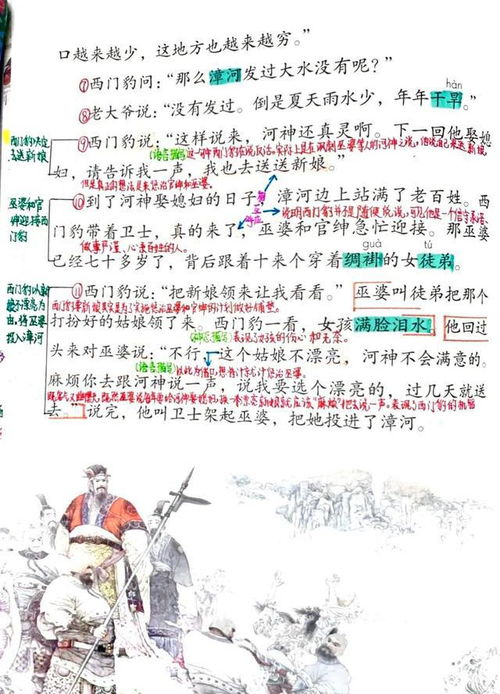 口越来越少，这地方也越来越穷。”
⑦西门豹问：“那么漳河发过大水没有呢？”
hàn
⑧老大爷说：“没有发过。倒是夏天雨水少，年年干旱。”
西门豹决定去送新娘
⑨西门豹说：“这样说来，河神还真灵啊。下一回他娶媳
（语言描写）
妇，请告诉我一声，我也去送送新娘。”
巫婆和官绅迎接西门豹
⑩到了河神娶媳妇的日子，漳河边上站满了老百姓。西
门豹带着卫士，真的来了，巫婆和官绅急忙迎接。那巫婆
做事严谨、心系百姓的人。
guà tú
已经七十多岁了，背后跟着十来个穿着绸褂的女徒弟。
西门豹以新娘不漂亮为由，将巫婆投入漳河
⑪西门豹说：“把新娘领来让我看看。”巫婆叫徒弟把那个
打扮好的姑娘领了来。西门豹一看，女孩满脸泪水。他回过
表现了女孩的伤心和无奈。
头来对巫婆说：“不行，这个姑娘不漂亮，河神不会满意的。
（语言描写）
麻烦你去跟河神说一声，说我要选个漂亮的，过几天就送
去。”说完，他叫卫士架起巫婆，把她投进了漳河。